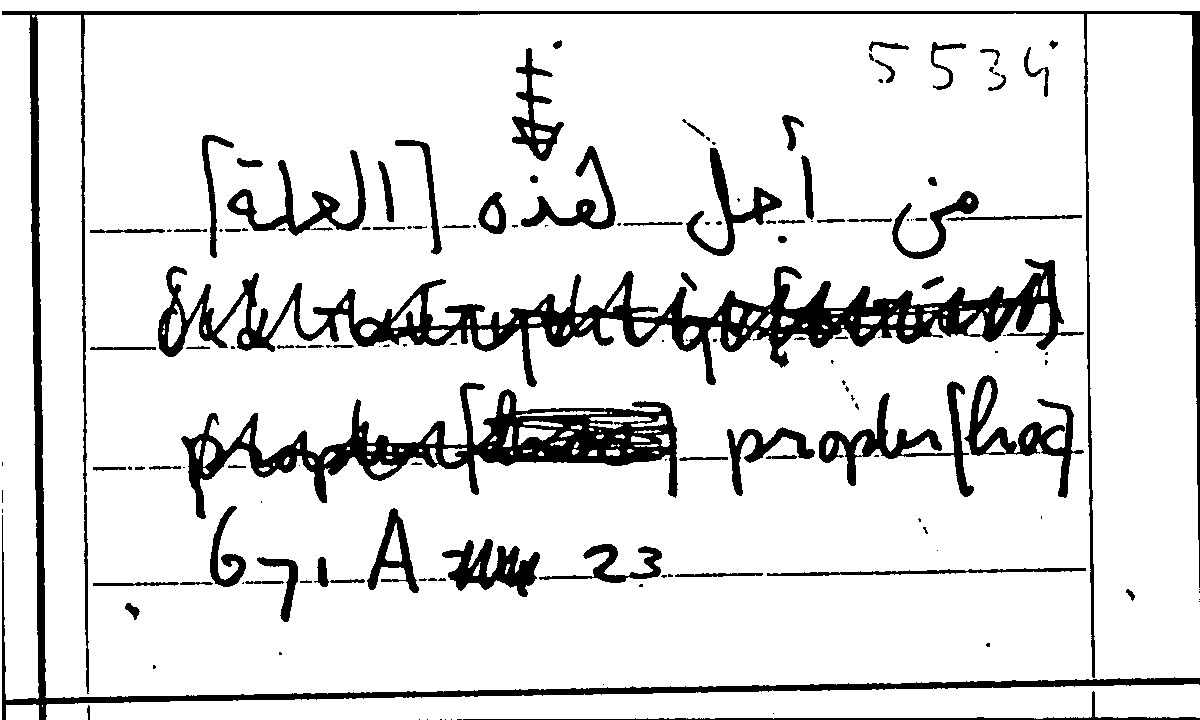 5534
من أجل هذه [العلة]
propter [hoc]
671 A 23